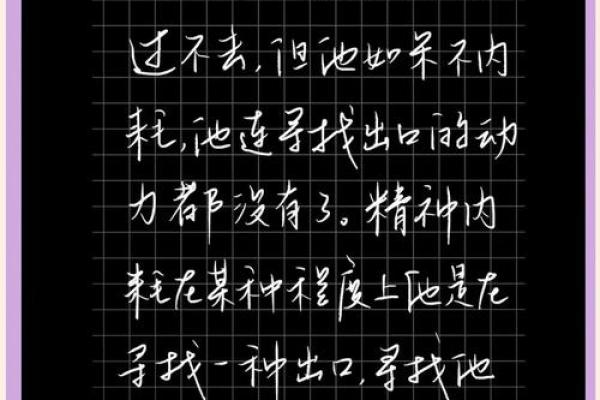 过不去,但他如果不内
耗,他连寻找出口的动
力都没有了。精神内
耗在某种程度上他是在
寻找一种出口,寻找他